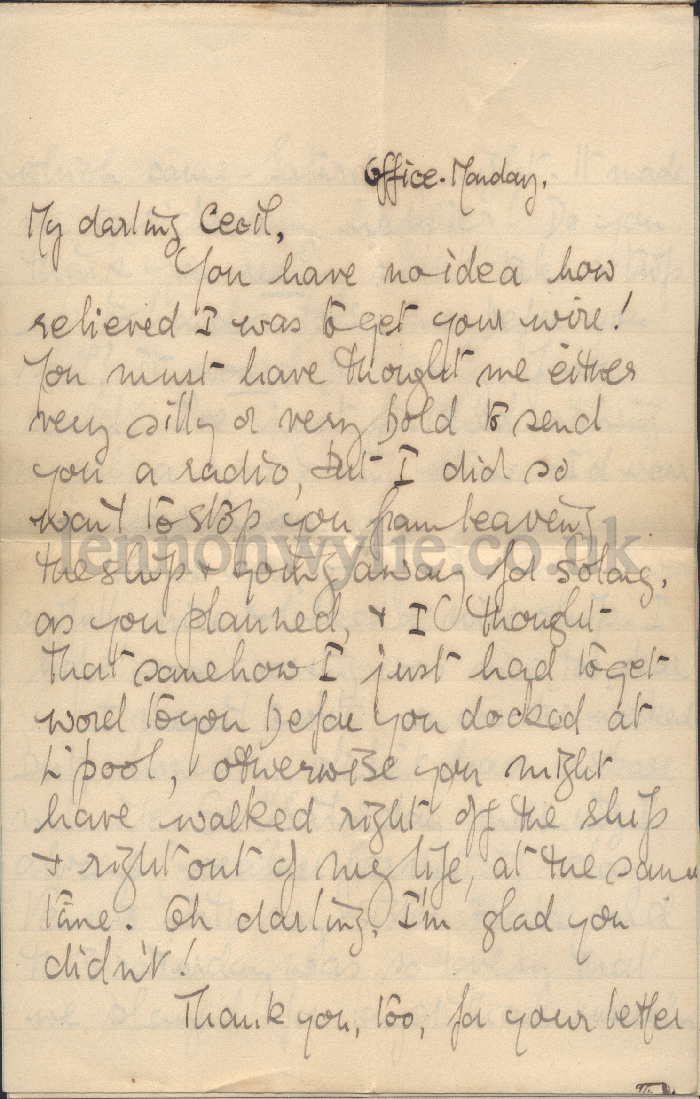 Office. Monday.
My darling Cecil,
You have no idea how
relieved I was to get your wire!
You must have thought me either
very silly or very bold to send
you a radio, but I did so
want to stop you from leaving
the ship & going away for so long,
as you planned, & I thought
that somehow I just had to get
word to you before you docked at
L'pool, otherwise you might
have walked right off the ship
& right out of my life, at the same
time. Oh darling, I'm glad you
didn't!
Thank you, too, for your letter
lennonwylie.co.uk